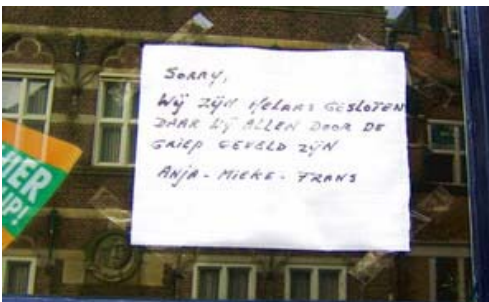 Sorry,
Wij zijn helaas gesloten
daar wij allen door de
griep geveld zijn
Anja - Mieke - Frans
HER
UP!